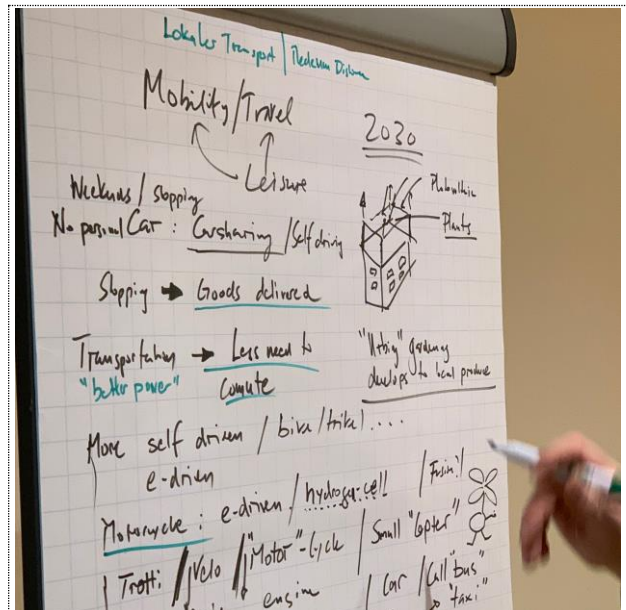 Lokales Transport | Medium Distance
Mobility/Travel
2030
Leisure
Photovoltaic
Plants
/ Shopping
No personal Car : Carsharing / Self driving
Shopping → Goods delivered
Transportation → Less need to
"better power" Comute
gardening
develops to local produce
More self driven / bike / trike / ....
e-driven
Motorcycle : e-driven / hydrogen cell / Fusion!
| Trotti / Velo / "Motor"-Cycle / Small "Copter"
engine / Car / Call "bus"
"taxi"